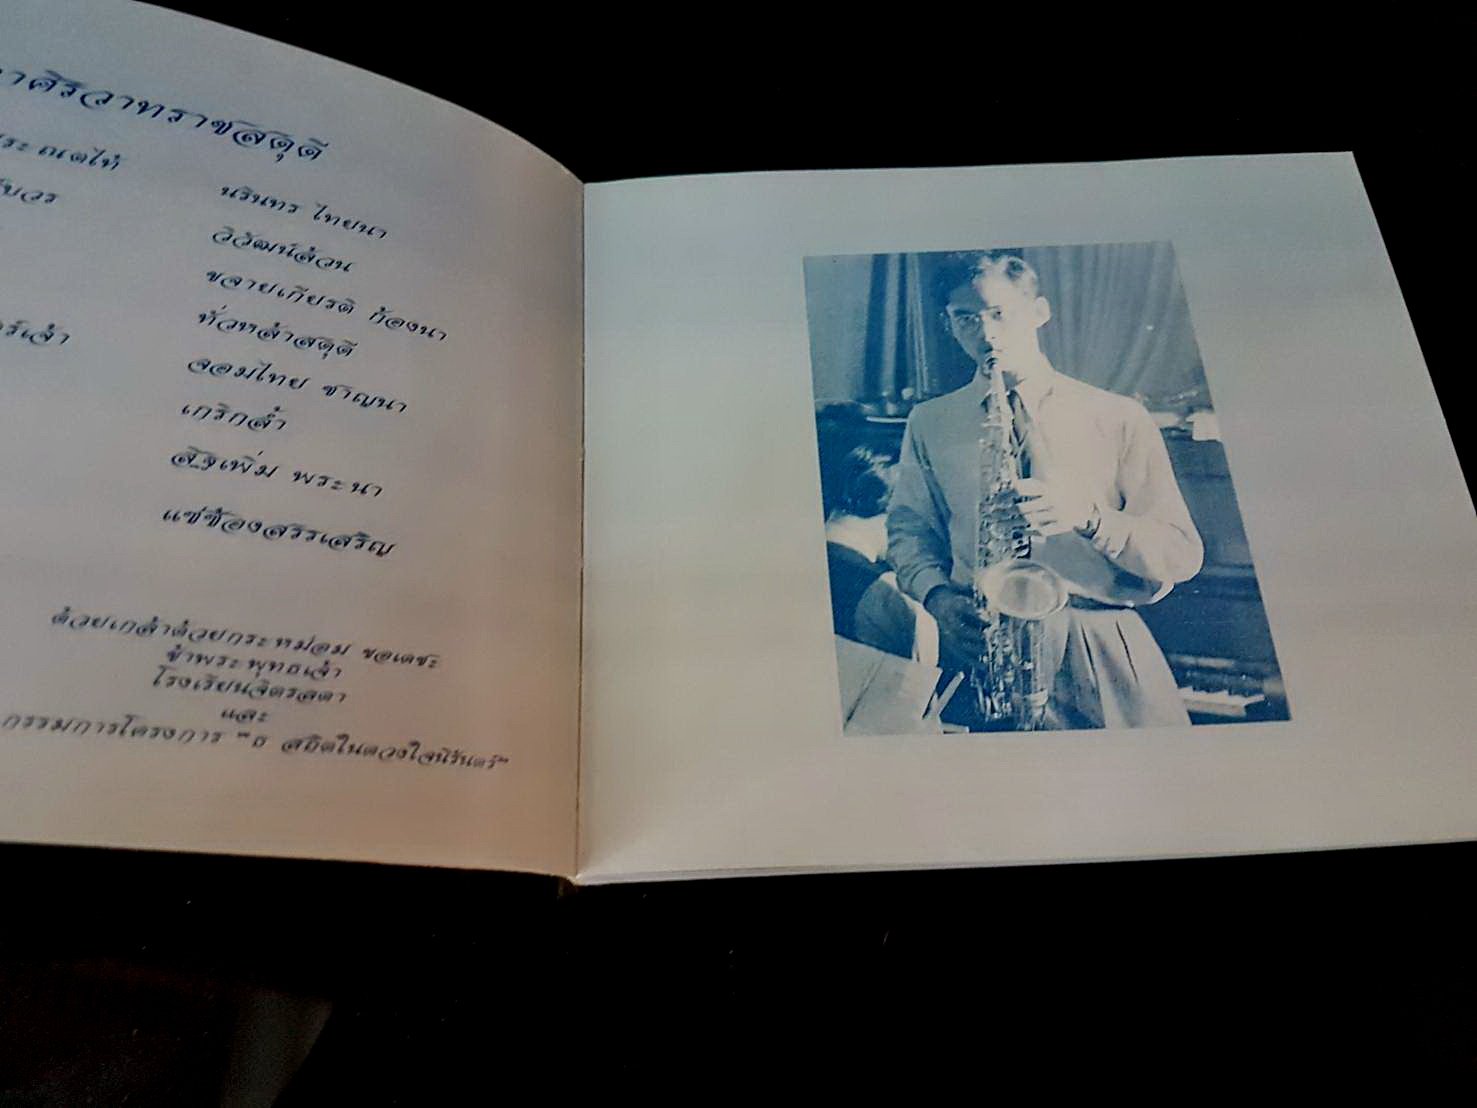 าศิรวาทราชสดุดี
ระณตไท้ นรินทร ไทยนา
บวร วิวัฒน์ล้วน
ขจายเกียรติ ก้องนา
ทั่วหล้าสดุดี
ร์เจ้า จอมไทย ชาญนา
เกริกล้ำ
สิ่งเพิ่ม พระนา
แซ่ซ้องสรรเสริญ
ด้วยเกล้าด้วยกระหม่อม ขอเดชะ
ข้าพระพุทธเจ้า
โรงเรียนจิตรลดา
และ
กรรมการโครงการ "ธ สถิตในดวงใจนิรันดร์"